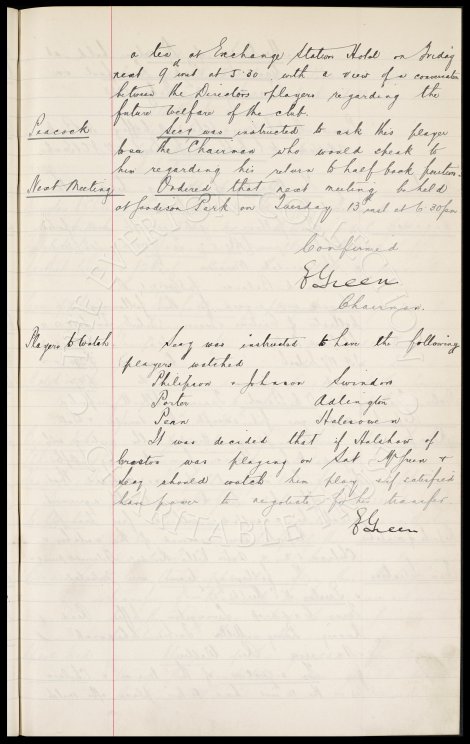 a tea at Exchange Station Hotel on Friday
next 9th inst at 5.30 with a view of a conversation
between the Directors & players regarding the
future welfare of the club.
Peacock Secy was instructed to ask this player
to see the Chairman who would speak to
him regarding his return to half back position.
Next Meeting Ordered that next meeting be held
at Goodison Park on Tuesday 13th inst at 6.30 pm
Confirmed
E Green
Chairman.
Players to Watch Secy was instructed to have the following
players watched
Philipson & Johnson Swindon
Porter Adlington
Pean Halesowen
It was decided that if Halshaw of
was playing on Sat Mr &
Secy should watch him play & if satisfied
have power to negotiate for his transfer
E Green
THE EVERTON
CHARITABLE